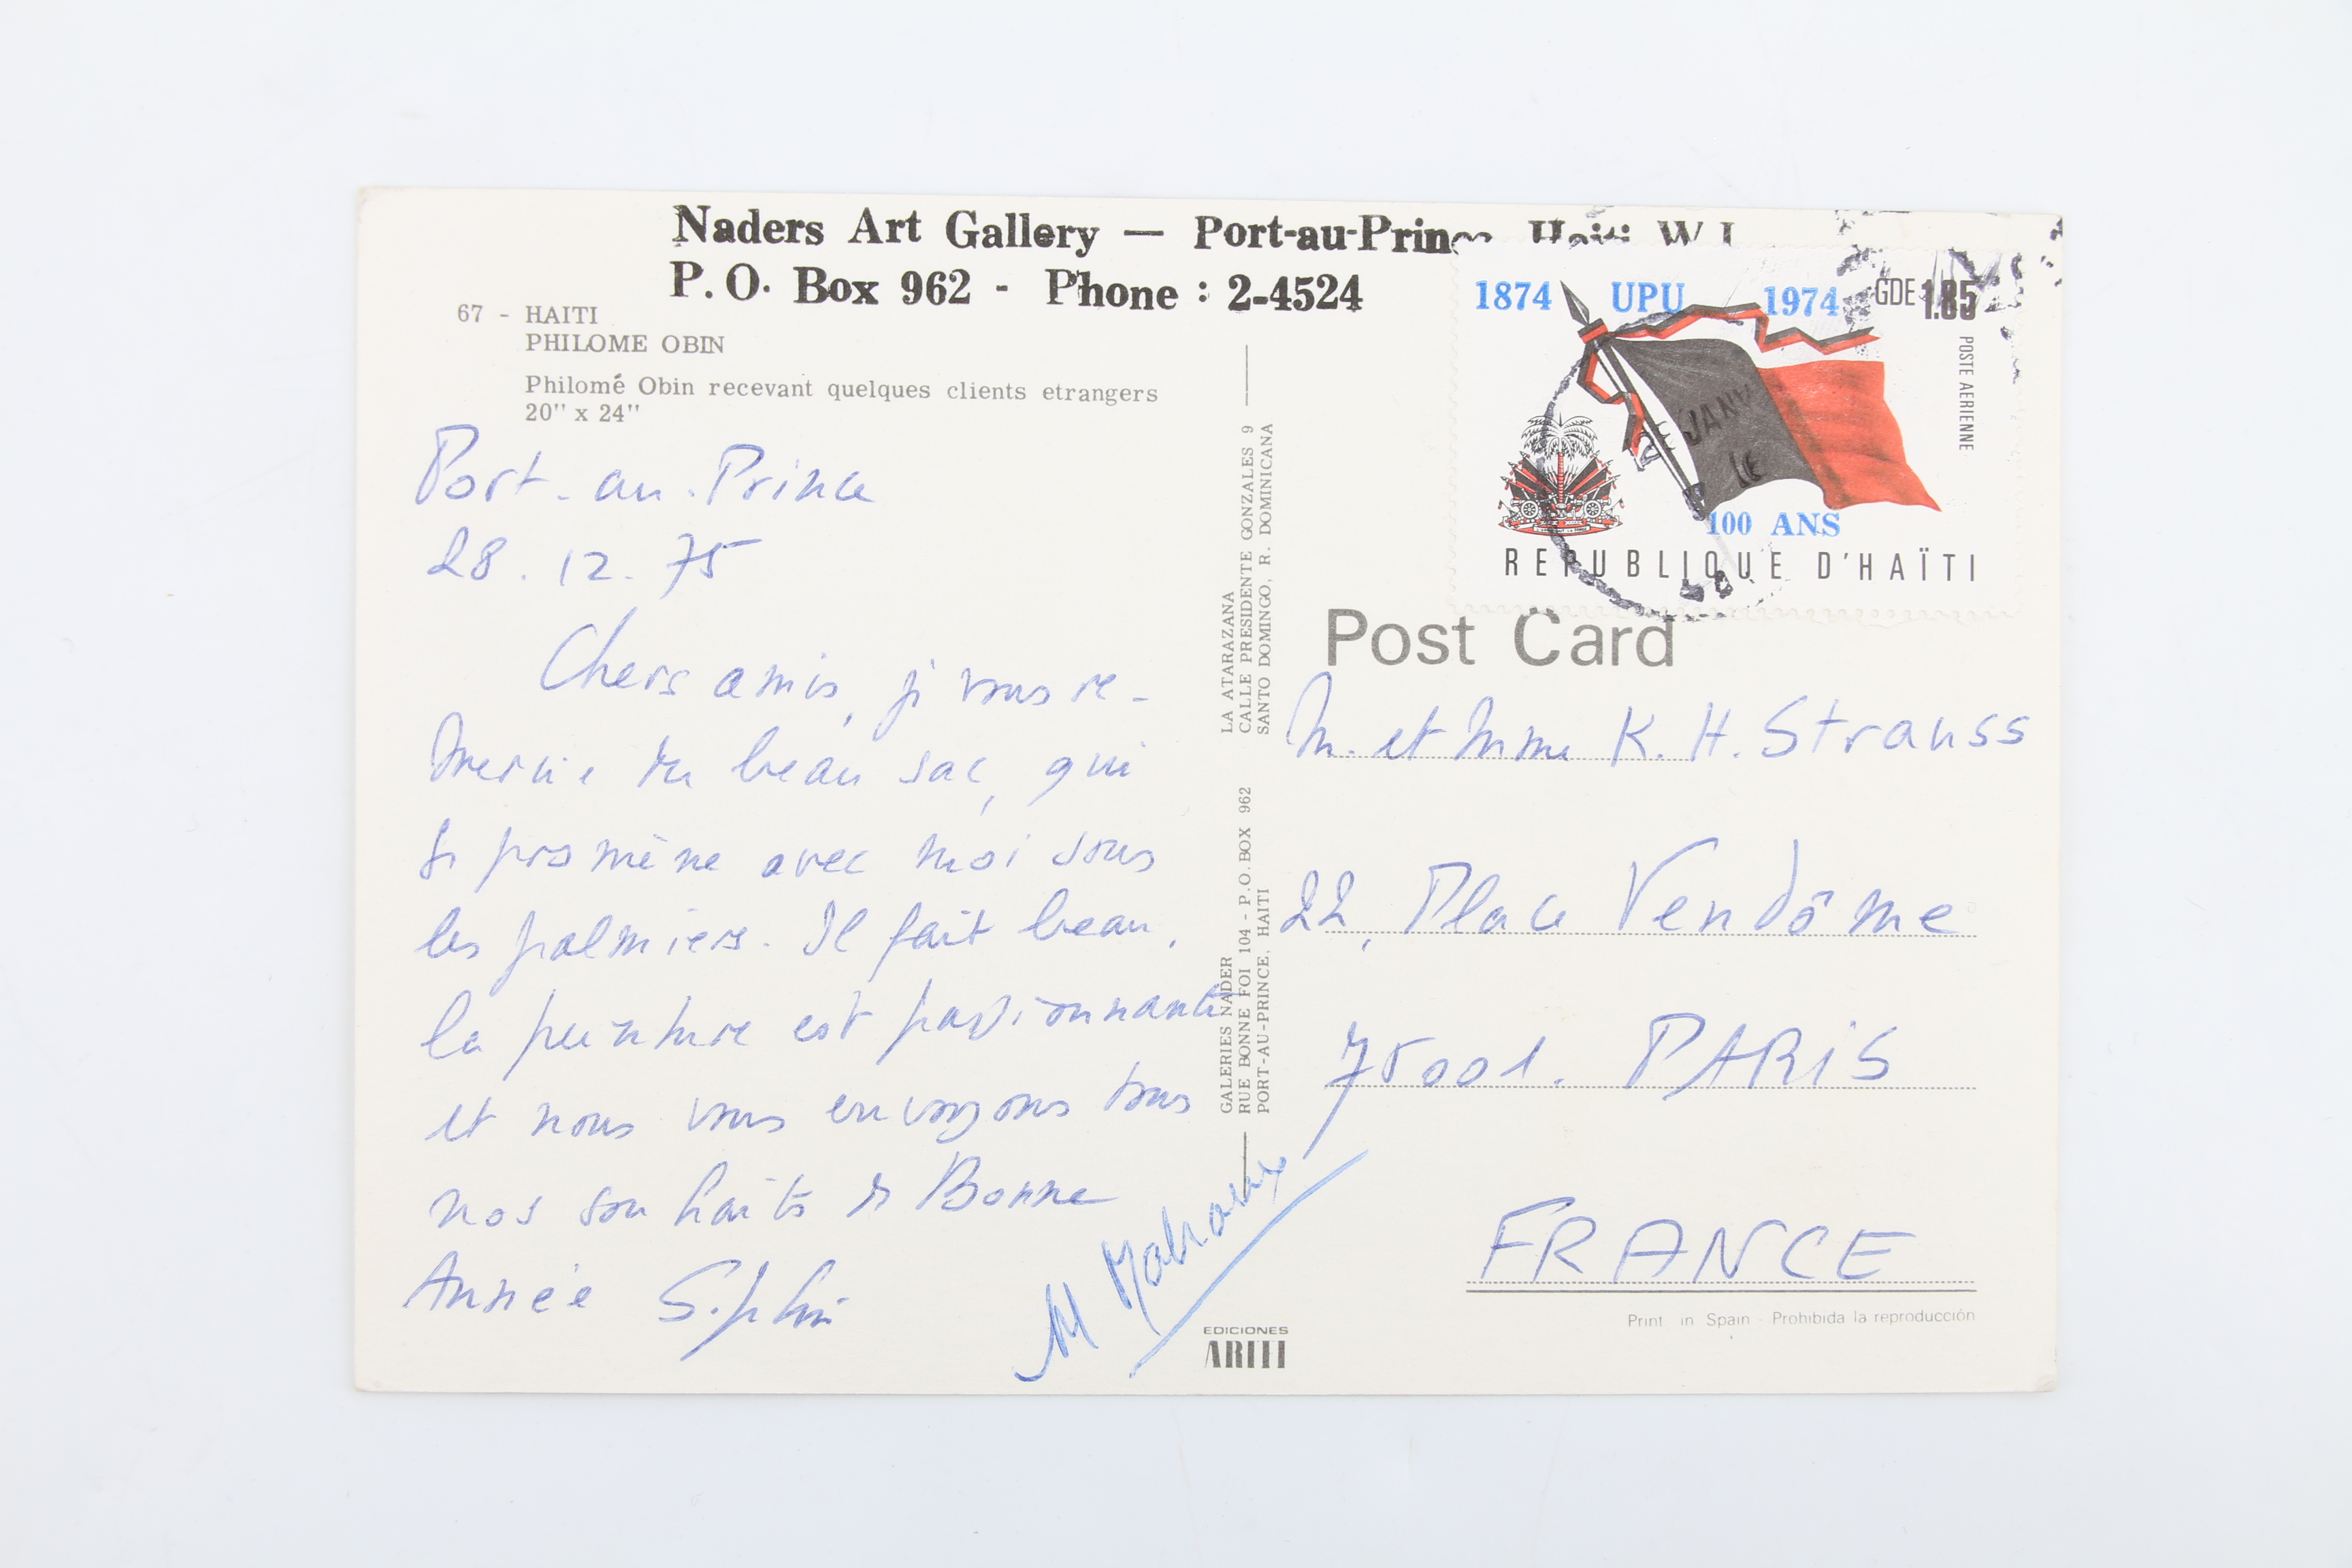 Naders Art Gallery — Port-au-Prince Haiti W I
P.O. Box 962 - Phone : 2-4524
67 - HAITI
PHILOME OBIN
Philomé Obin recevant quelques clients etrangers
20" x 24"
Port-au-Prince
28.12.75
Chers amis, je vous re-
mercie du beau sac, qui
se promène avec moi sous
les palmiers. Il fait beau,
la peinture est passionnante
et nous vous envoyons tous
nos souhaits de Bonne
Année
M
LA ATARAZANA
CALLE PRESIDENTE GONZALES 9
SANTO DOMINGO, R. DOMINICANA
GALERIES NADER
RUE BONNE FOI 104 - P.O. BOX 962
PORT-AU-PRINCE, HAITI
EDICIONES
ARTTI
1874 UPU 1974 GDE 1.85
POSTE AERIENNE
JANV
100 ANS
REPUBLIQUE D'HAÏTI
Post Card
M. et Mme K. H. Strauss
22, Place Vendôme
75001. PARIS
FRANCE
Print in Spain - Prohibida la reproducción